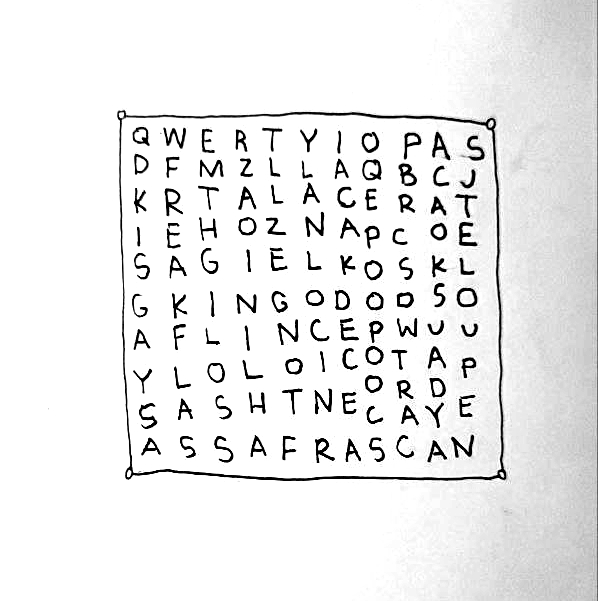 Q W E R T Y I O P A S
D F M Z L L A Q B C J
K R T A L A C E R A T
I E H O Z N A P C O E
S A G I E L K O S K L
G K I N G O D O D S O
A F L I N C E P W U U
Y L O L O I C O T A P
S A S H T N E O R D E
A S S A F R A S C A Y
C A N